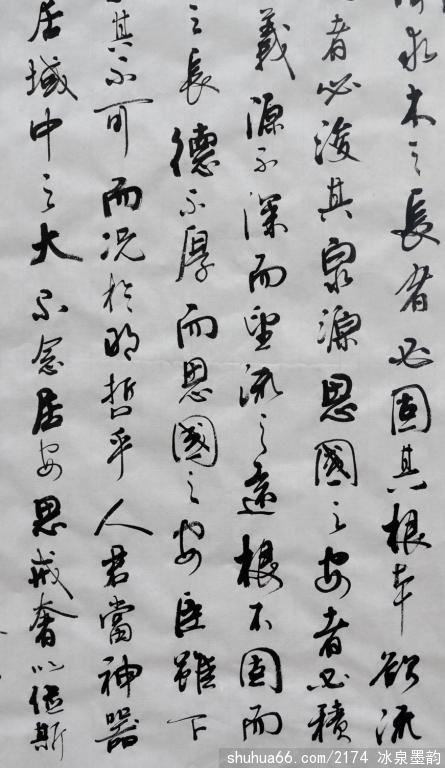 求木之長者必固其根本欲流
者必浚其泉源思國之安者必積
義源不深而望流之遠根不固而
之長德不厚而思國之安臣雖下
其不可而況於明哲乎人君當神器
居域中之大不念居安思戒奢以儉斯
shuhua66.com/2174 冰泉墨韵